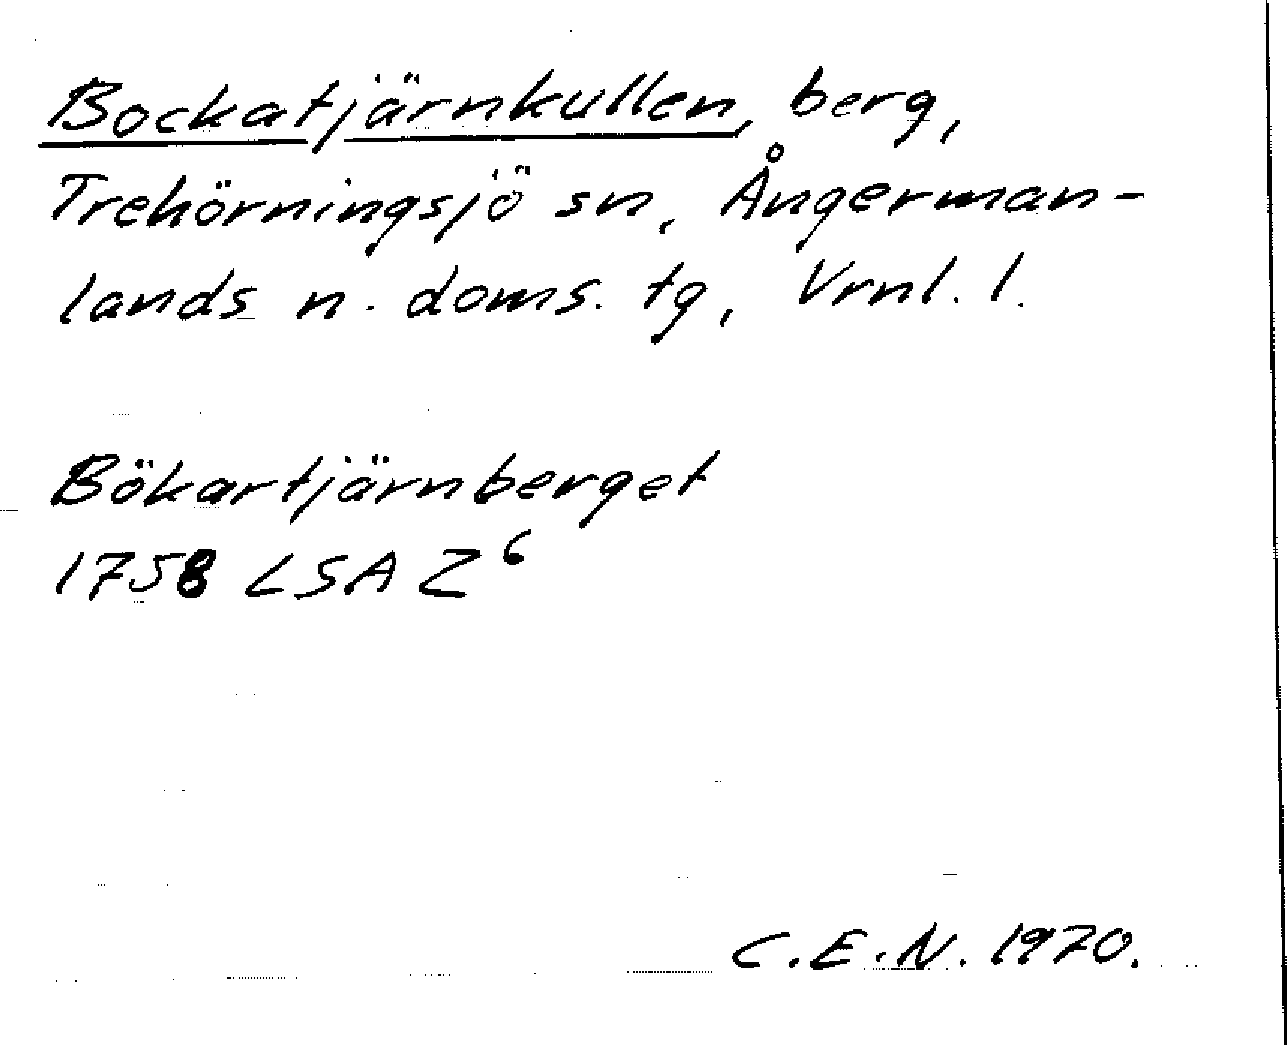 Bockatjärnkullen, berg,
Trehörningsjö sn, Ångerman-
lands n. doms. tg, Vrnl. l.
Bökartjärnberget
1758 LSA Z⁶
C.E.N. 1970.